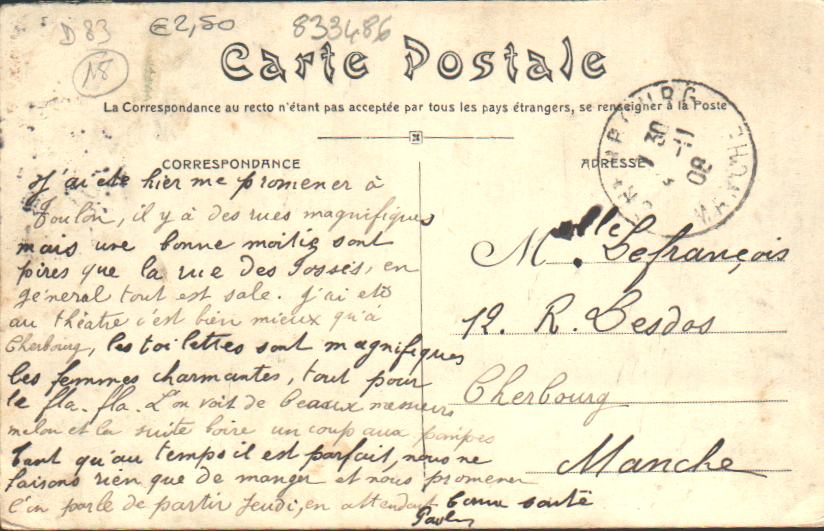 D 83
€2,50
833486
N8
Carte Postale
La Correspondance au recto n'étant pas acceptée par tous les pays étrangers, se renseigner à la Poste
CHERBOURG
MANCHE
30 -11
08
CORRESPONDANCE
J'ai été hier me promener à
Toulon, il y à des rues magnifiques
mais une bonne moitié sont
pires que la rue des Fossés, en
général tout est sale. J'ai eté
au théatre c'est bien mieux qu'a
Cherbourg, les toilettes sont magnifiques
les femmes charmantes, tout pour
le fla-fla. L'on voit de beaux messieurs
melon et la suite boire un coup aux pompes
tant qu'au temps il est parfait, nous ne
faisons rien que de manger et nous promener
l'on parle de partir Jeudi, en attendant bonne santé
ADRESSE
Melle Lefrançois
12. R. Lesdos
Cherbourg
Manche